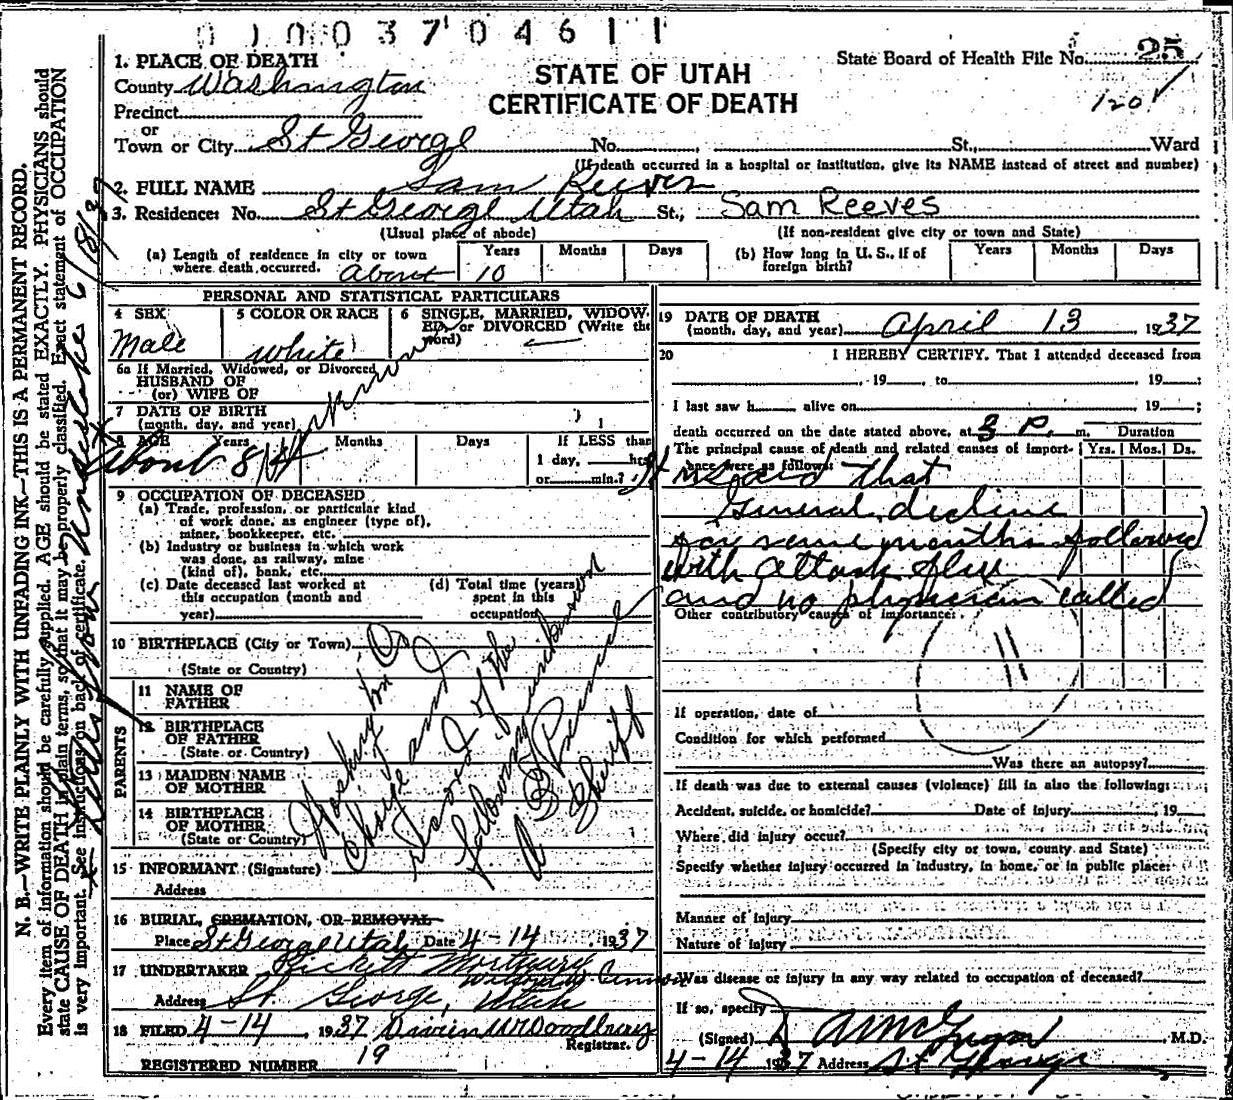 0 1 0 0 3 7 0 4 6 1 1
State Board of Health File No. 25
120 ✓
STATE OF UTAH
CERTIFICATE OF DEATH
1. PLACE OF DEATH
County Washington
Precinct
or
Town or City St George No. St., Ward
(If death occurred in a hospital or institution, give its NAME instead of street and number)
2. FULL NAME Sam Reeves
3. Residence: No. St George Utah St., Sam Reeves
(Usual place of abode) (If non-resident give city or town and State)
(a) Length of residence in city or town where death occurred. about Years 10 Months Days
(b) How long in U. S., if of foreign birth? Years Months Days
PERSONAL AND STATISTICAL PARTICULARS
4 SEX Male
5 COLOR OR RACE white
6 SINGLE, MARRIED, WIDOWED, or DIVORCED (Write the word)
6a If Married, Widowed, or Divorced
HUSBAND OF
(or) WIFE OF
7 DATE OF BIRTH
(month, day, and year) unknown
8 AGE Years Months Days
About 84
If LESS than
1 day, hrs.
or min.?
9 OCCUPATION OF DECEASED
(a) Trade, profession, or particular kind
of work done, as engineer (type of),
miner, bookkeeper, etc.
(b) Industry or business in which work
was done, as railway, mine
(kind of), bank, etc.
(c) Date deceased last worked at
this occupation (month and
year)
(d) Total time (years)
spent in this
occupation
10 BIRTHPLACE (City or Town)
(State or Country)
PARENTS
11 NAME OF
FATHER
12 BIRTHPLACE
OF FATHER
(State or Country)
13 MAIDEN NAME
OF MOTHER
14 BIRTHPLACE
OF MOTHER
(State or Country)
Washington Co
Charge and
of the
following
Sheriff
15 INFORMANT (Signature)
Address
16 BURIAL, CREMATION, OR REMOVAL
Place St George Utah Date 4-14 1937
17 UNDERTAKER Pickett Mortuary
Address St. George, Utah
18 FILED 4-14 1937 Woodbury
Registrar.
REGISTERED NUMBER 19
19 DATE OF DEATH
(month, day, and year) April 13 1937
20 I HEREBY CERTIFY, That I attended deceased from
, 19 , to , 19 ;
I last saw h alive on , 19 ;
death occurred on the date stated above, at 3 P. m. Duration
The principal cause of death and related causes of importance were as follows: Yrs. Mos. Ds.
It is said that
General decline
for some months followed
with attack flu
and no physician called
Other contributory causes of importance:
11
If operation, date of
Condition for which performed
Was there an autopsy?
If death was due to external causes (violence) fill in also the following:
Accident, suicide, or homicide? Date of injury , 19
Where did injury occur?
(Specify city or town, county and State)
Specify whether injury occurred in industry, in home, or in public place:
Manner of injury
Nature of injury
Was disease or injury in any way related to occupation of deceased?
If so, specify
(Signed) A W McGregor , M.D.
4-14 1937 Address St George
N. B.—WRITE PLAINLY WITH UNFADING INK—THIS IS A PERMANENT RECORD.
Every item of information should be carefully supplied. AGE should be stated EXACTLY. PHYSICIANS should
state CAUSE OF DEATH in plain terms, so that it may be properly classified. Exact statement of OCCUPATION
is very important. See instructions on back of certificate.